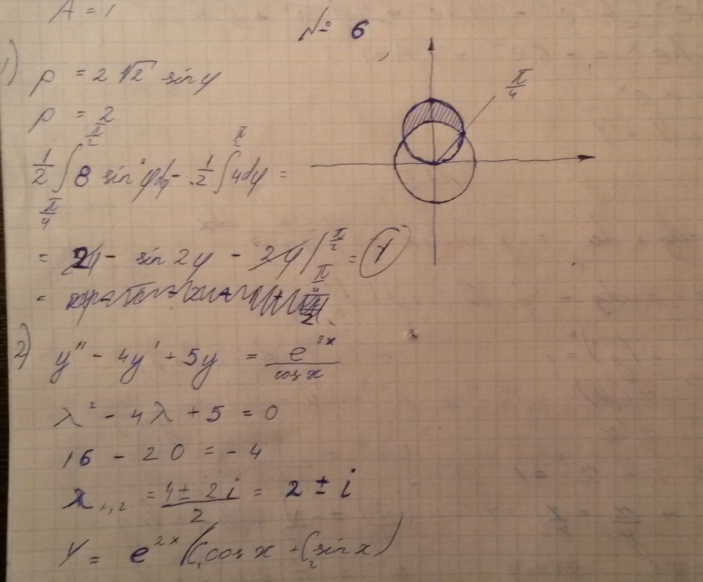 A = 1
№ 6
1) ρ = 2√2 sin φ
ρ = 2
π/4
1/2 ∫_{π/4}^{π/2} 8 sin² φ dφ - 1/2 ∫^{π/2} 4 dφ =
= 2φ - sin 2φ - 2φ |_{π/4}^{π/2} = 1
=
2) y'' - 4y' + 5y = e^{2x}/cos x
λ² - 4λ + 5 = 0
16 - 20 = -4
λ_{1,2} = (4 ± 2i)/2 = 2 ± i
Y = e^{2x} (C₁ cos x + C₂ sin x)